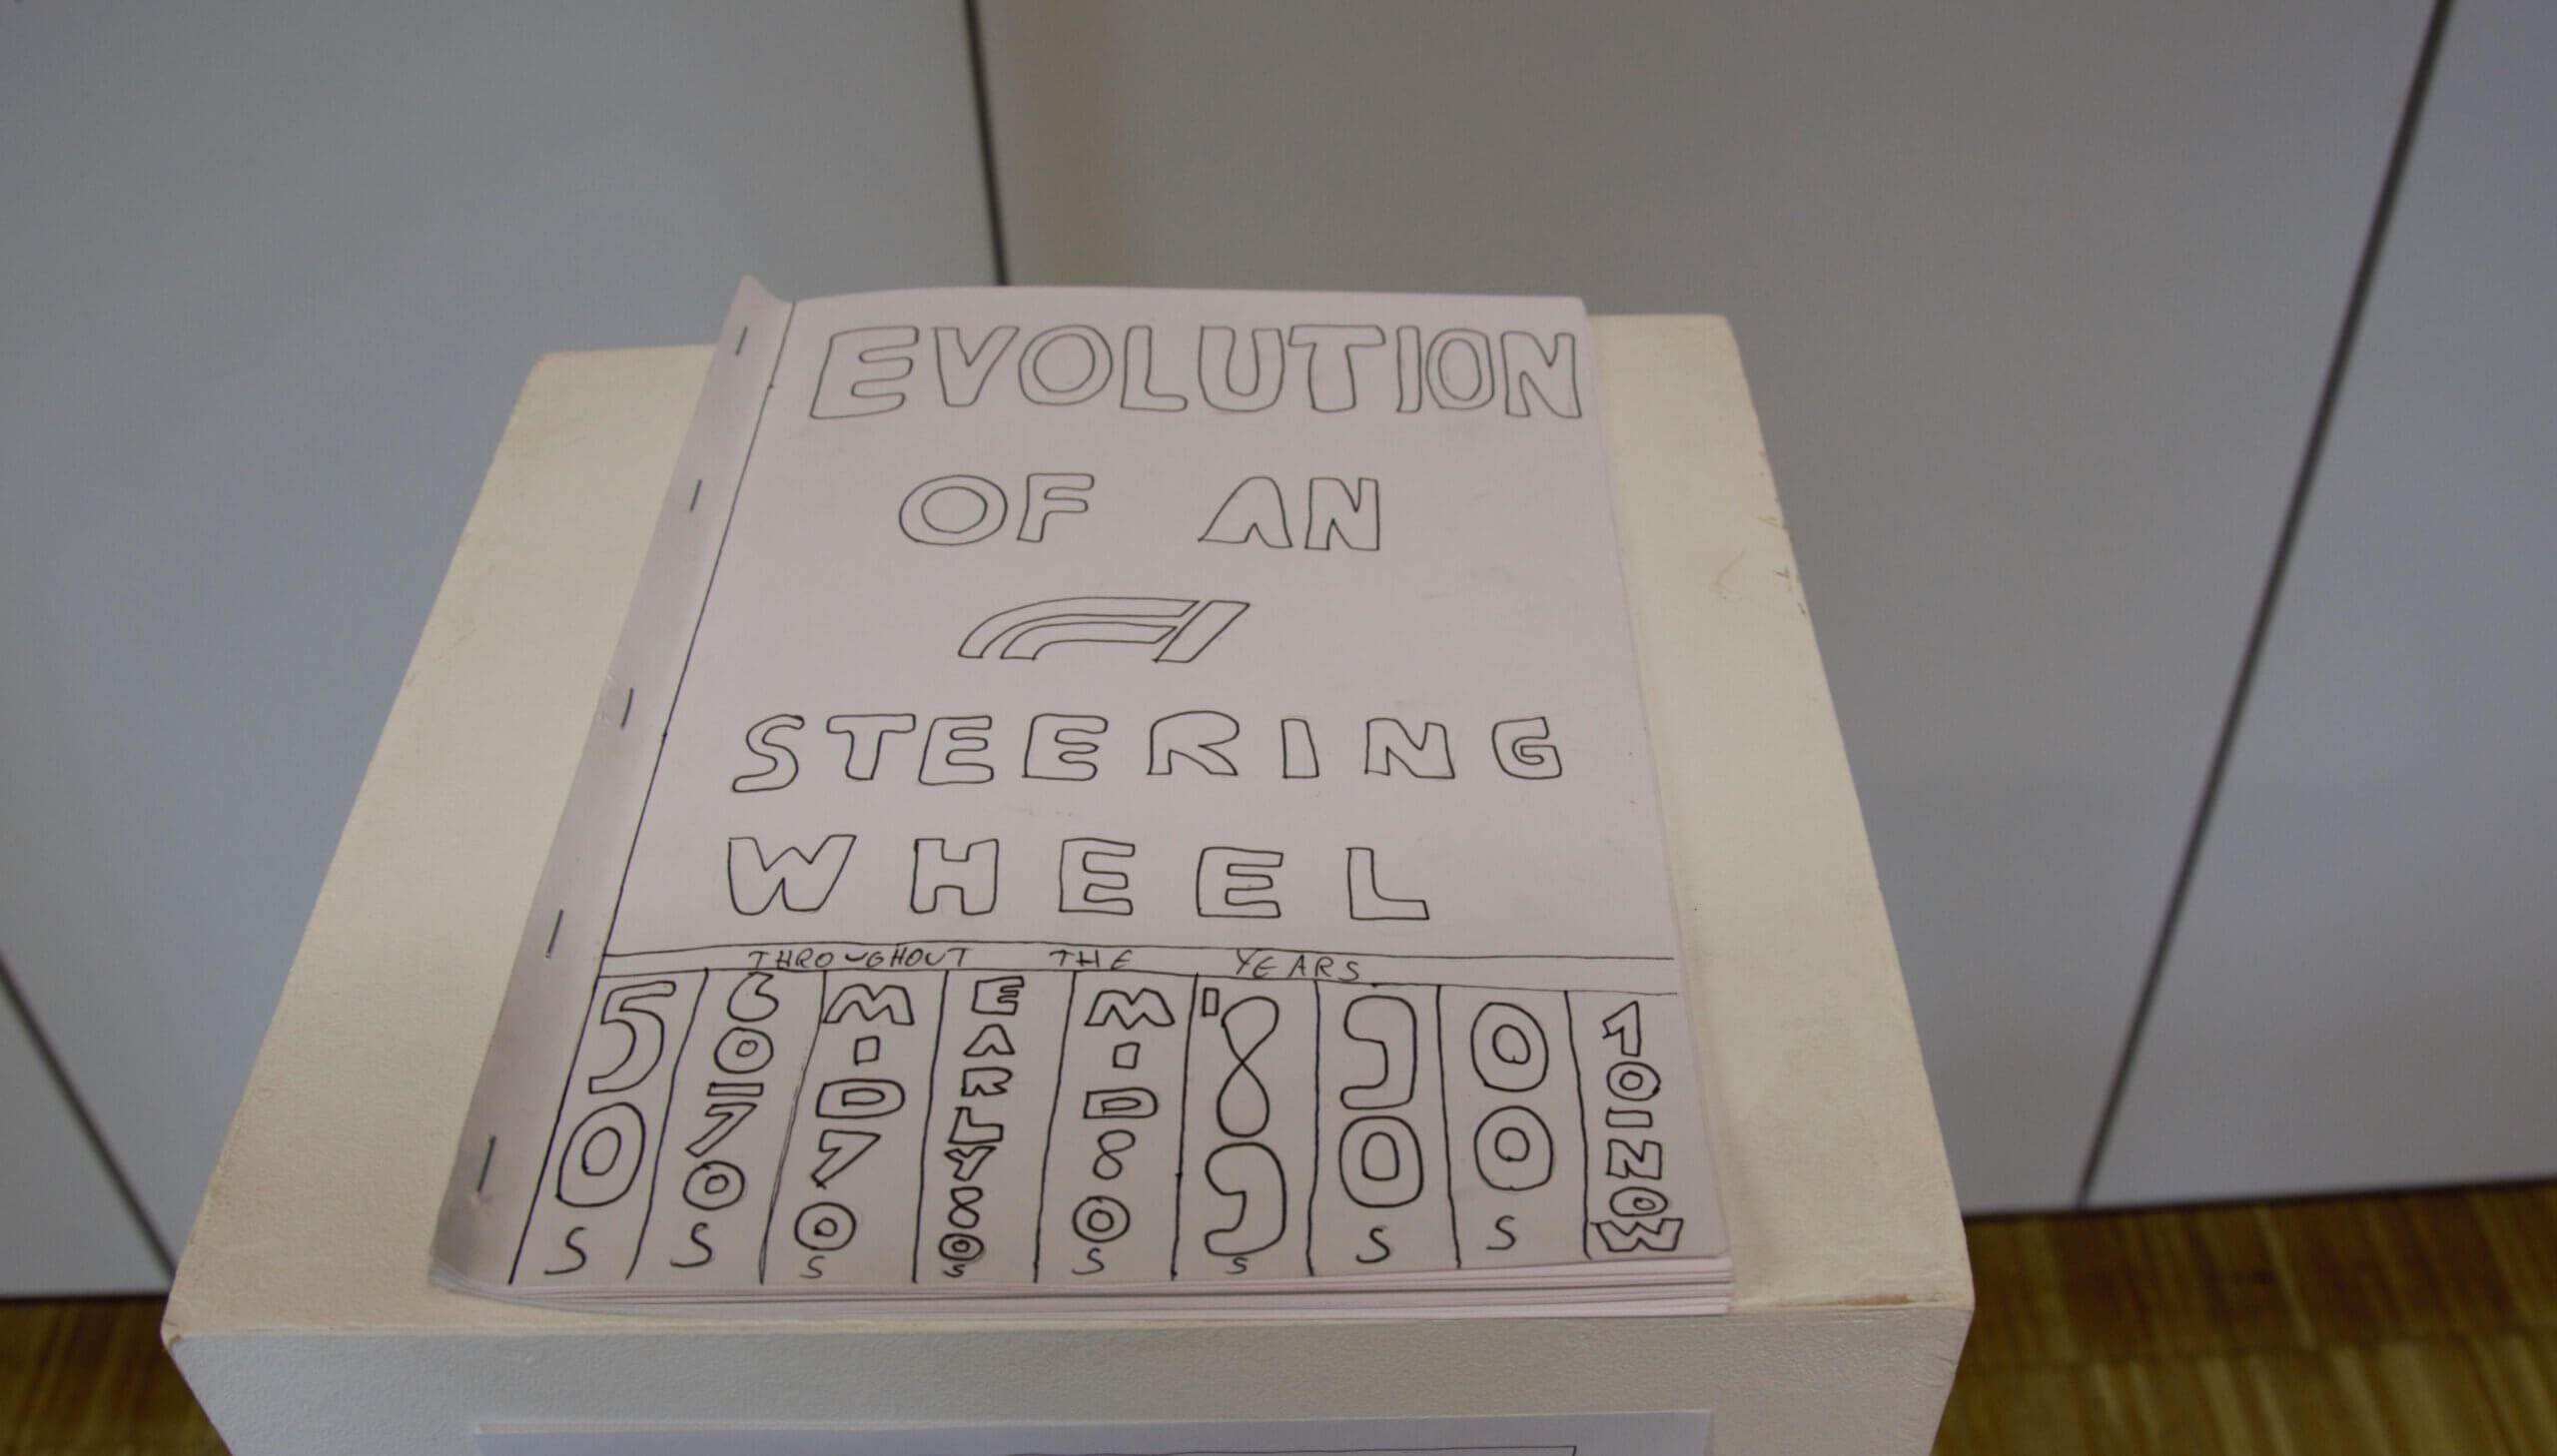 EVOLUTION
OF AN
F1
STEERING
WHEEL
THROUGHOUT THE YEARS
50s
60/70s
MID 70s
EARLY 80s
MID 80s
'89s
90s
00s
10/NOW